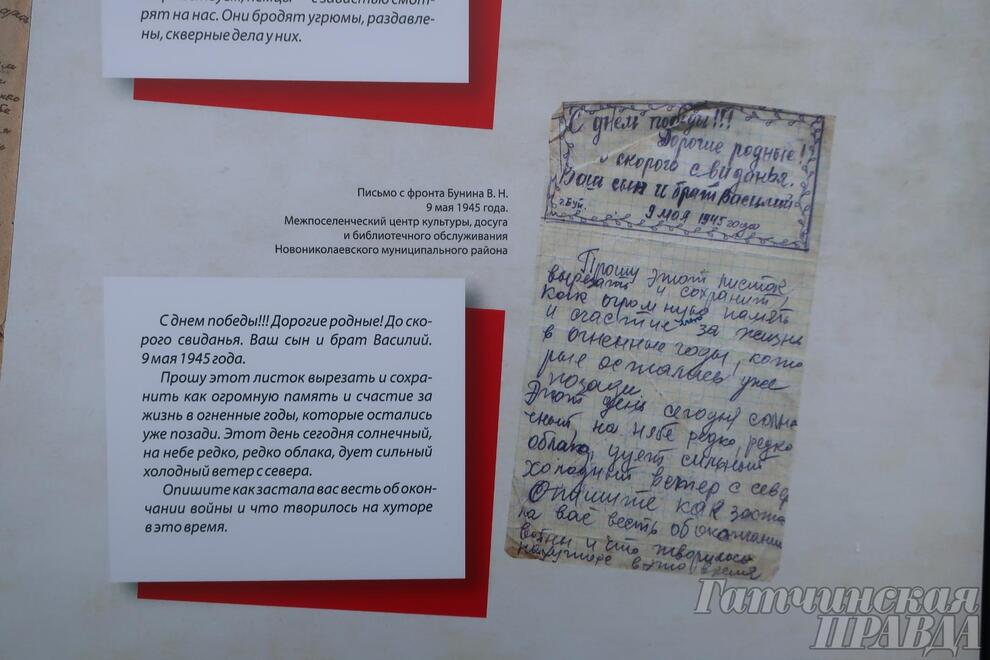 рят на нас. Они бродят угрюмы, раздавле-
ны, скверные дела у них.
Письмо с фронта Бунина В. Н.
9 мая 1945 года.
Межпоселенческий центр культуры, досуга
и библиотечного обслуживания
Новониколаевского муниципального района
С днем победы!!! Дорогие родные! До ско-
рого свиданья. Ваш сын и брат Василий.
9 мая 1945 года.
Прошу этот листок вырезать и сохра-
нить как огромную память и счастие за
жизнь в огненные годы, которые остались
уже позади. Этот день сегодня солнечный,
на небе редко, редко облака, дует сильный
холодный ветер с севера.
Опишите как застала вас весть об окон-
чании войны и что творилось на хуторе
в это время.
С днем победы!!!
Дорогие родные!
скорого свиданья.
Ваш сын и брат Василий
9 мая 1945 года
Прошу этот листок
вырезать и сохранить,
как огромную память
и счастие за жизнь
в огненные годы, кото
рые остались уже
позади.
Этот день сегодня солне
чный, на небе редко, редко
облака, дует сильный
холодный ветер с севе
Опишите как заста
ла вас весть об окончании
войны и что творилось
на хуторе в это время
Гатчинская
ПРАВДА